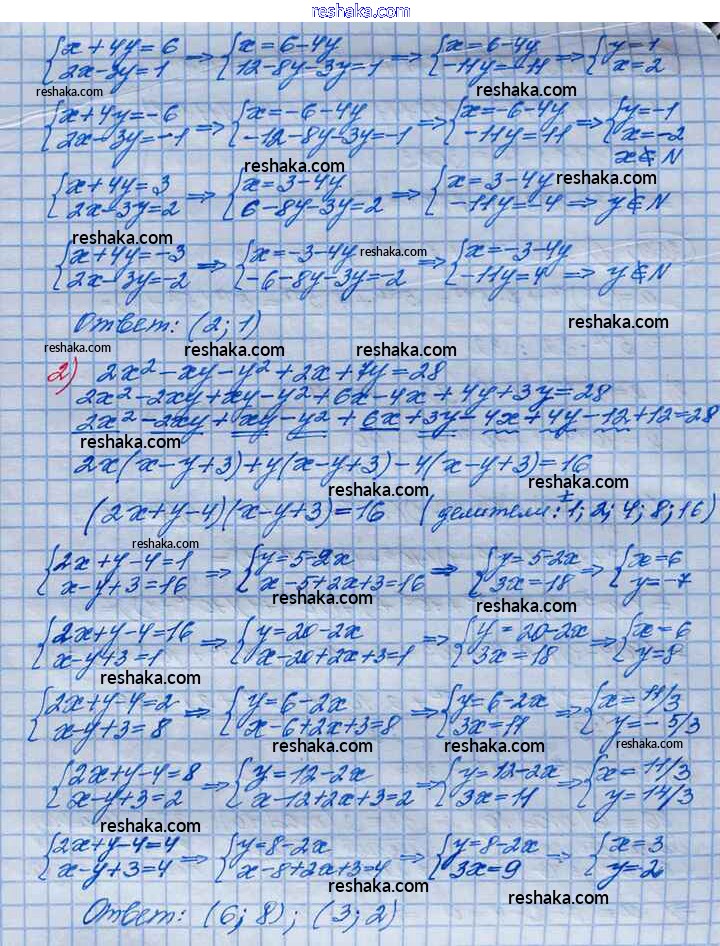 reshaka.com
{x+4y=6 2x-3y=1 => {x=6-4y 12-8y-3y=1 => {x=6-4y -11y=-11 => {y=1 x=2
reshaka.com reshaka.com
{x+4y=-6 2x-3y=-1 => {x=-6-4y -12-8y-3y=-1 => {x=-6-4y -11y=11 => {y=-1 x=-2 x∉N
reshaka.com reshaka.com
{x+4y=3 2x-3y=2 => {x=3-4y 6-8y-3y=2 => {x=3-4y -11y=-4 => y∉N
reshaka.com
{x+4y=-3 2x-3y=-2 => {x=-3-4y -6-8y-3y=-2 => {x=-3-4y -11y=4 => y∉N
reshaka.com
Ответ: (2; 1)
reshaka.com
reshaka.com reshaka.com reshaka.com
2) 2x²-xy-y²+2x+7y=28
2x²-2xy+xy-y²+6x-4x+4y+3y=28
2x²-2xy+xy-y²+6x+3y-4x+4y-12+12=28
reshaka.com reshaka.com
2x(x-y+3)+y(x-y+3)-4(x-y+3)=16
reshaka.com
(2x+y-4)(x-y+3)=16 (делители: ±1; 2; 4; 8; 16)
reshaka.com reshaka.com
{2x+y-4=1 x-y+3=16 => {y=5-2x x-5+2x+3=16 => {y=5-2x 3x=18 => {x=6 y=-7
reshaka.com reshaka.com
{2x+y-4=16 x-y+3=1 => {y=20-2x x-20+2x+3=1 => {y=20-2x 3x=18 => {x=6 y=8
reshaka.com reshaka.com
{2x+y-4=2 x-y+3=8 => {y=6-2x x-6+2x+3=8 => {y=6-2x 3x=11 => {x=11/3 y=-5/3
reshaka.com reshaka.com
{2x+y-4=8 x-y+3=2 => {y=12-2x x-12+2x+3=2 => {y=12-2x 3x=11 => {x=11/3 y=14/3
reshaka.com reshaka.com
{2x+y-4=4 x-y+3=4 => {y=8-2x x-8+2x+3=4 => {y=8-2x 3x=9 => {x=3 y=2
reshaka.com reshaka.com
Ответ: (6; 8); (3; 2)